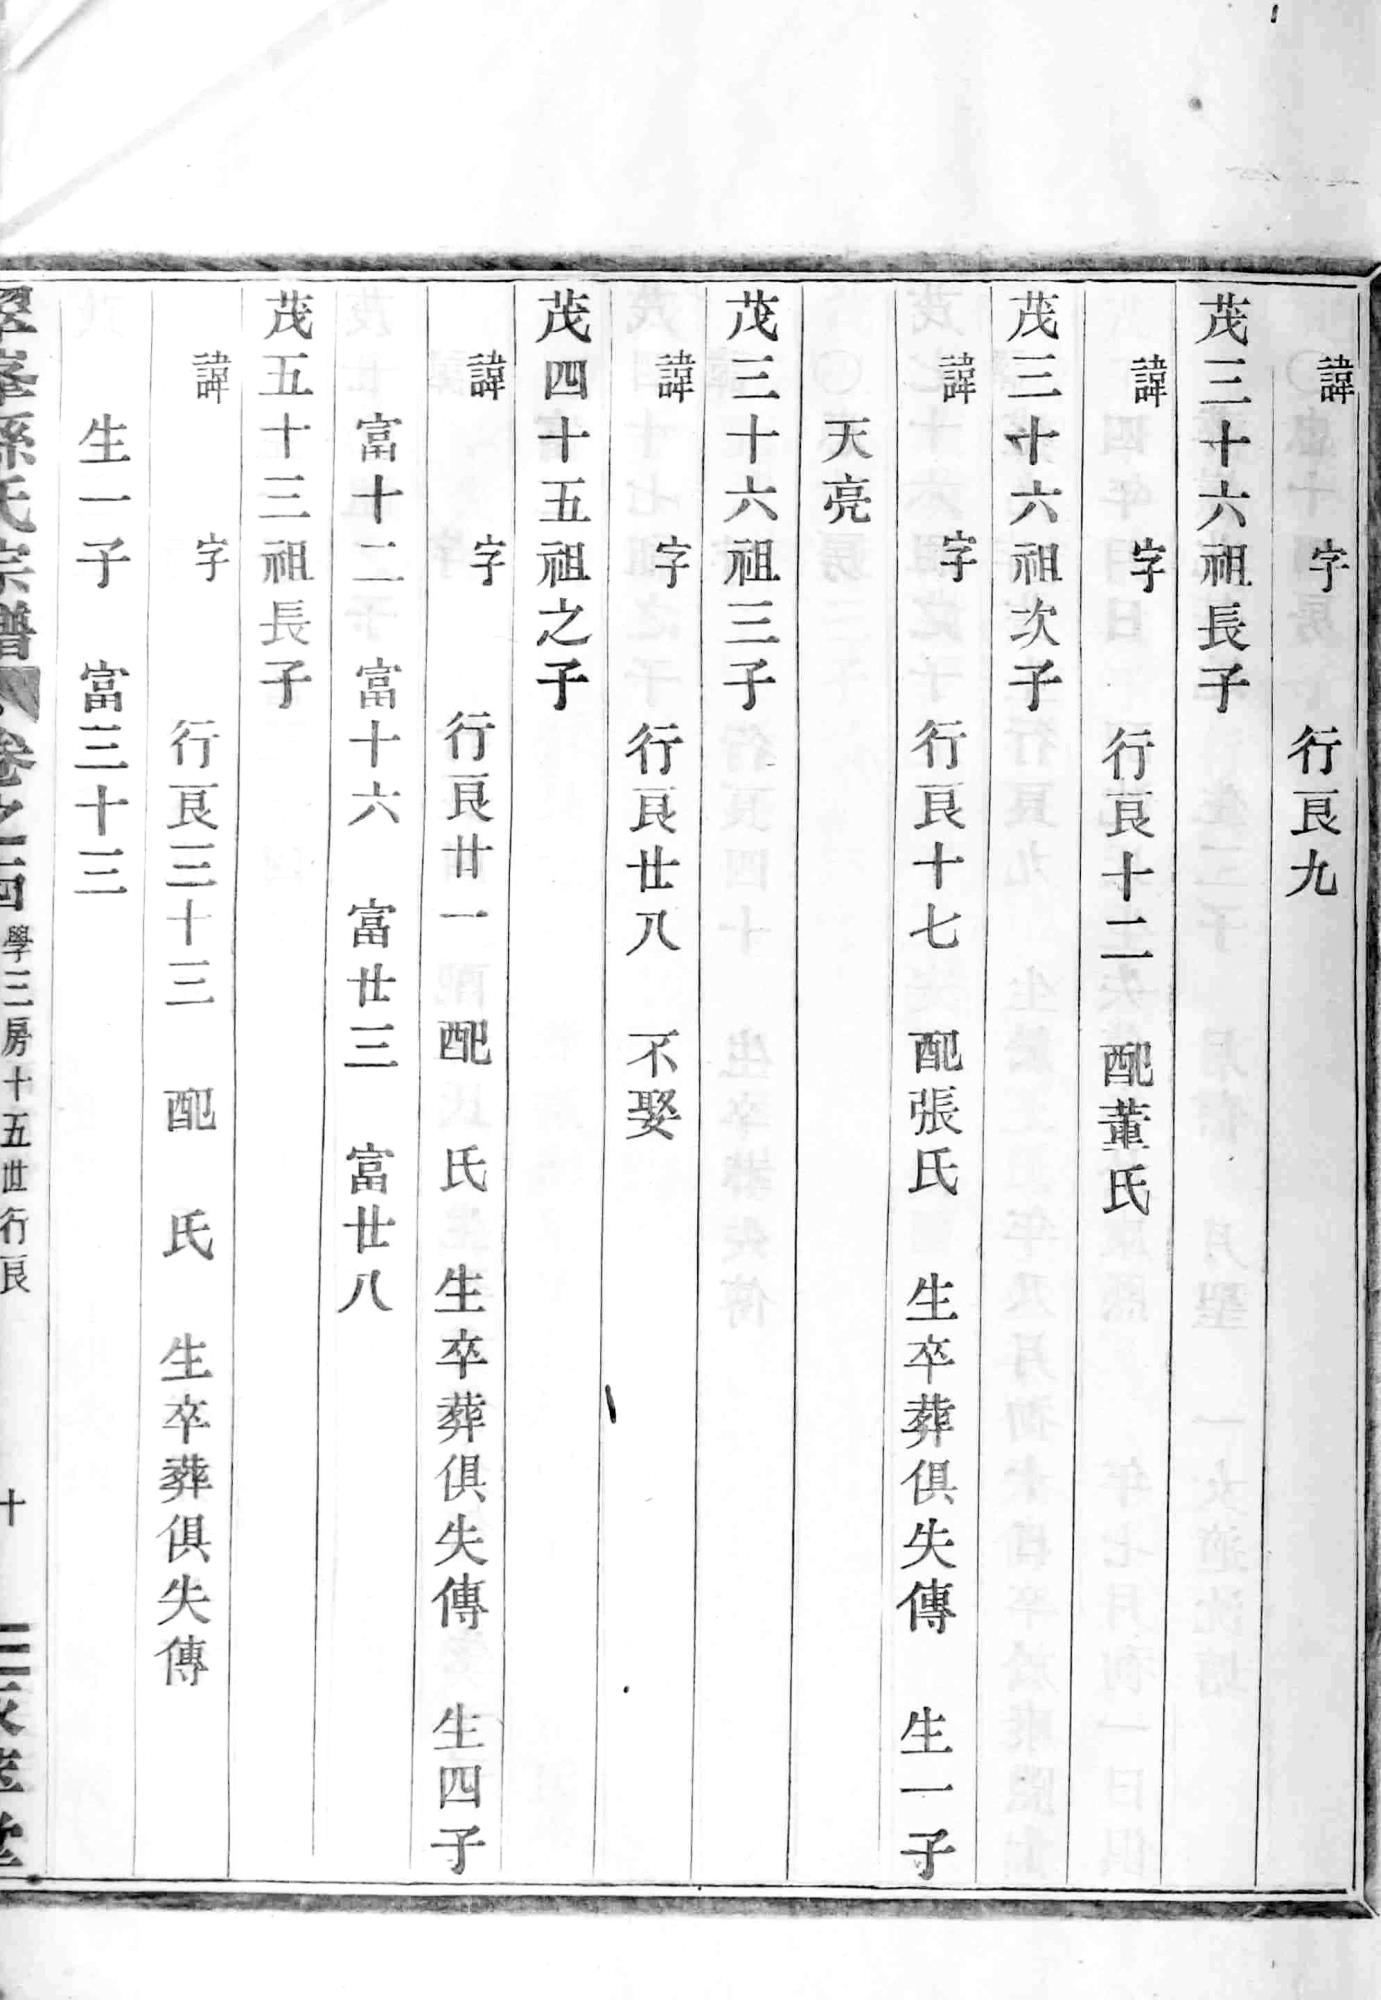 諱 字 行艮九
茂三十六祖長子
諱 字 行艮十二 配董氏
茂三十六祖次子
諱 字 行艮十七 配張氏 生卒葬俱失傳 生一子
天亮
茂三十六祖三子
諱 字 行艮廿八 不娶
茂四十五祖之子
諱 字 行艮廿一 配 氏 生卒葬俱失傳 生四子
富十二 富十六 富廿三 富廿八
茂五十三祖長子
諱 字 行艮三十三 配 氏 生卒葬俱失傳
生一子 富三十三
翠峯孫氏宗譜 卷之四 學三房十五世行艮 十 堂